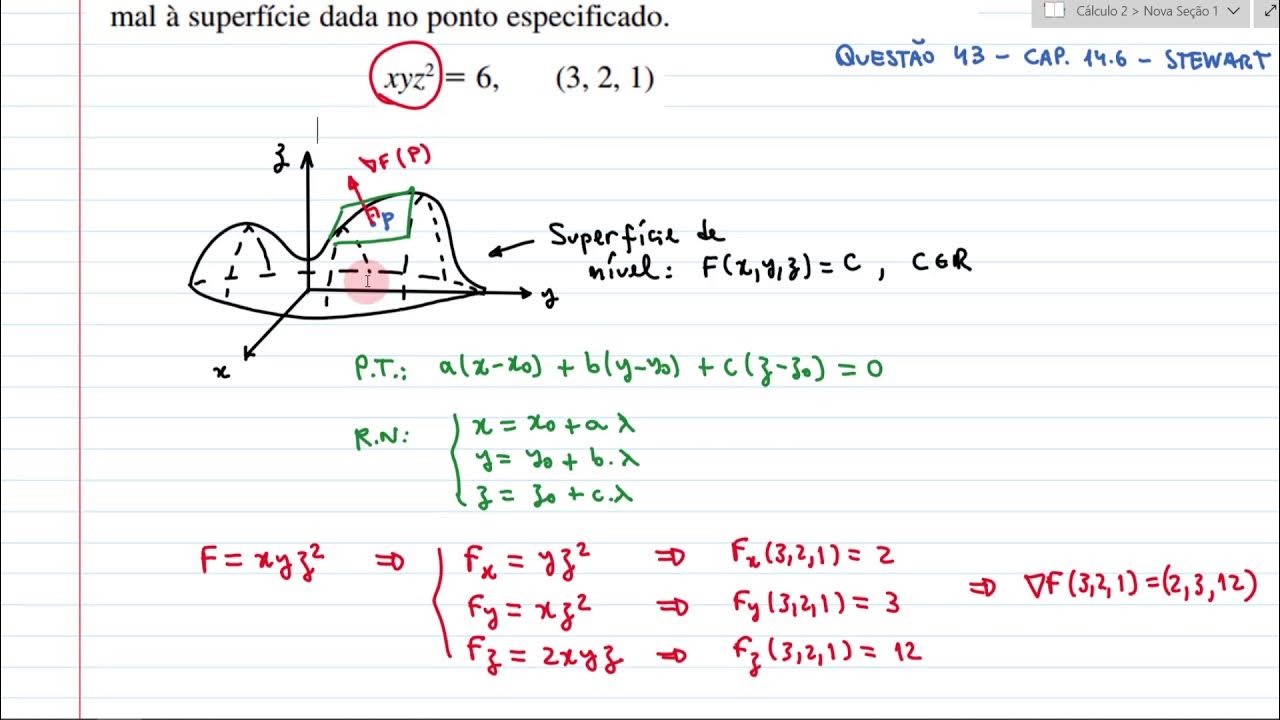 mal à superfície dada no ponto especificado.
Cálculo 2 > Nova Seção 1
QUESTÃO 43 - CAP. 14.6 - STEWART
xyz² = 6, (3, 2, 1)
z
∇F(P)
P
y
x
Superfície de
nível: F(x,y,z) = C , C∈R
P.T.: a(x-x₀) + b(y-y₀) + c(z-z₀) = 0
R.N: { x = x₀ + a λ
y = y₀ + b.λ
z = z₀ + c.λ
F = xyz² ⇒ { Fx = yz² ⇒ Fx(3,2,1) = 2
Fy = xz² ⇒ Fy(3,2,1) = 3 ⇒ ∇F(3,2,1) = (2,3,12)
Fz = 2xyz ⇒ Fz(3,2,1) = 12